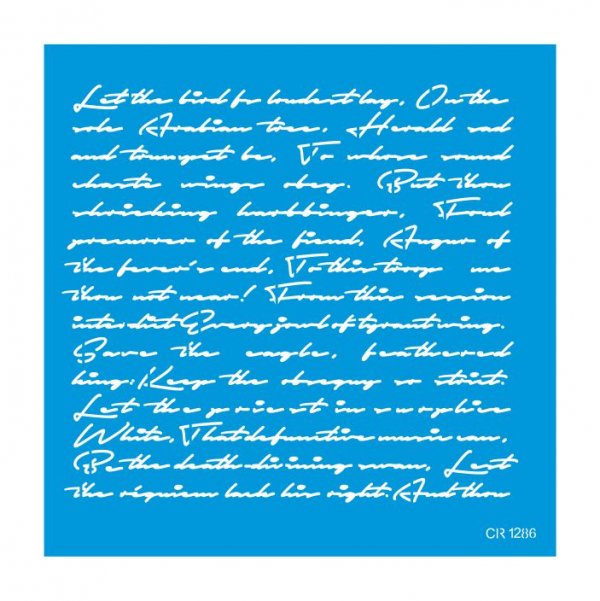 Let the bird fo loudest lay, On the
sole Arabian tree, Herald sad
and trumpet be, To whose sound
chaste wings obey. But thou
shrieking harbbinger, Foul
precurrer of the fiend, Augur of
the fever's end, To this troop we
thou not near! From this session
interdict Every foul of tyrant wing.
Save the eagle, feathered
king: Keep the obsequy so strict.
Let the priest in surplice
White, That defunctive music can,
Be the death divining swan, Lest
the requiem lack his right. And thou
CR 1286